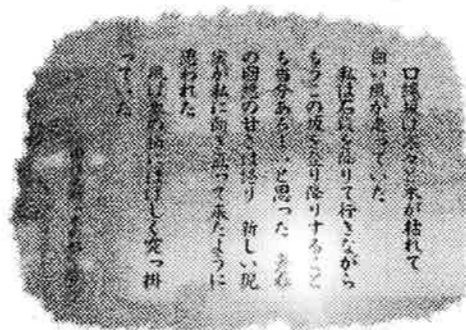 口隅園は冬々と木が枯れて
白い風が走っていた
私は石段を降りて行きながら
もうこの坂を登り降りすること
も当分あるまいと思った
の回想の甘さは終り 新しい現
実が私に向き迫って来たように
思われた
風は はげしく突っ掛
っていた